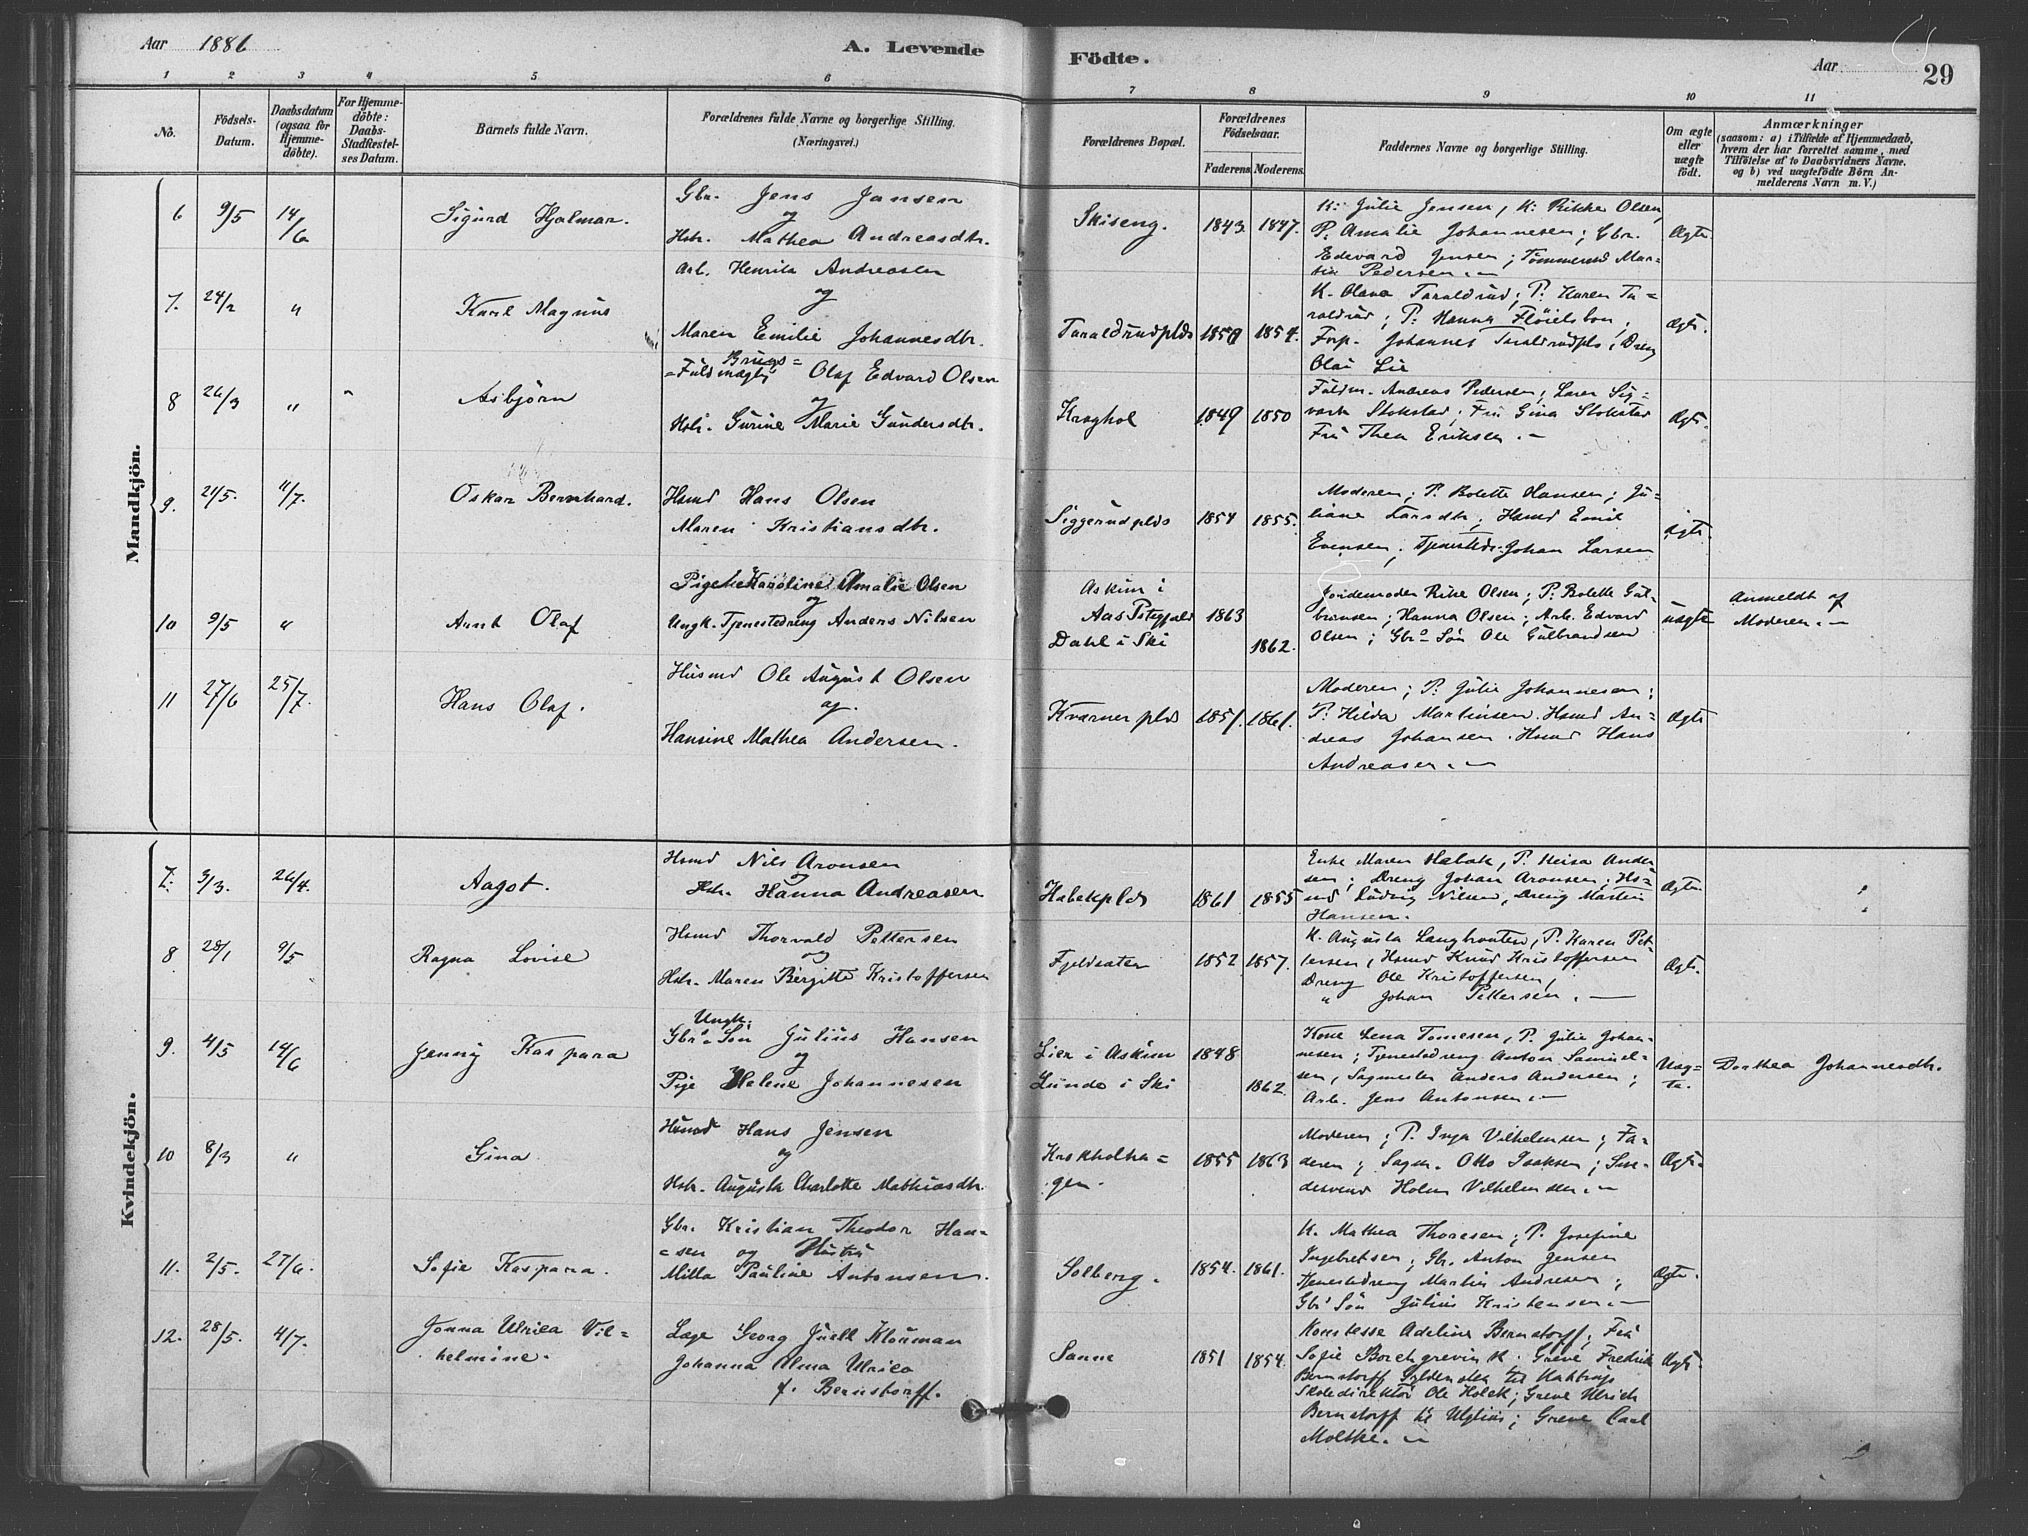 Aar 1886 A. Levende Födte. Aar 29
1 2 3 4 5 6 7 8 9 10 11
No. Födsels-Datum. Daabsdatum (ogsaa for Hjemme-döbte). For Hjemme-döbte: Daabs-Stadfæstel-ses Datum. Barnets fulde Navn. Forældrenes fulde Navne og borgerlige Stilling. (Næringsvei.) Forældrenes Bopæl. Forældrenes Födselsaar. Faderens Moderens. Faddernes Navne og borgerlige Stilling. Om ægte eller uægte födt. Anmærkninger (saasom: a) i Tilfælde af Hjemmedaab, hvem der har forrettet samme, med Tilföielse af to Daabsvidners Navne, og b) ved uægtefödte Börn Anmelderens Navn m. V.)
Mandkjön.
6 9/5 14/6 Sigurd Hjalmar.
Gbr. Jens Jansen
og
Hstr. Mathea Andreasdtr.
Skiseng. 1843. 1847.
K: Julie Jensen, K: Rikke Olsen,
P. Amalie Johannesen; Gbr.
Edevard Jensen; Tømmermd Mar-
tin Pedersen.
Ægte
7. 24/2 " Karl Magnus
Arb. Henrik Andreasen
og
Maren Emilie Johannesdtr.
Taraldrudplds 1850 1854.
K. Olava Taraldrud; P. Karen Ta-
raldrud; P. Hanna Fløielsbon;
Forp. Johannes Taraldrudpls; Dreng
Olai Lie
Ægte.
8 26/3 " Asbjörn
Brugs=
=Fuldmægtig Olaf Edvard Olsen
og
Hstr. Gurine Marie Gundersdtr.
Kraghol 1849 1850
Fuldm. Andreas Pedersen; Lærer Sig-
vart Stokstad; Fru Gina Stokstad
Fru Thea Eriksen.
Ægte.
9. 21/5. 11/7. Oskar Bernhard.
Hsmd Hans Olsen
Maren Kristiansdtr.
Siggerudplds 1854 1855.
Moderen; P. Bolette Hansen; Ju-
liane Larsdtr; Hsmd Emil
Evensen; Tjenestedr. Johan Larsen
Ægte.
10 9/5 " Arnt Olaf
Pige Karoline Amalie Olsen
og
Ungk. Tjenestedreng Anders Nilsen
Askim i
Aas 1863
Dahl i Ski 1862.
Jordemoder Rike Olsen; P. Bolette Gul-
bransen; Hanna Olsen; Arb. Edvard
Olsen; Gbrs Søn Ole Gulbrandsen
uægte
Anmeldt af
Moderen.
11 27/6 25/7. Hans Olaf.
Husmd Ole August Olsen
og
Hansine Mathea Andersen.
Kværnerplds 1857. 1861.
Moderen; P. Julie Johannesen;
P: Hilda Martinsen. Hsmd An-
dreas Johansen. Hsmd Hans
Andreasen.
Ægte
Kvindekjön.
7. 3/3. 26/4. Aagot.
Hsmd Nils Aronsen
og
Hstr. Hanna Andreasen
Habekplds 1861 1855
Enke Maren Habek, P. Ander-
sen; Dreng Johan Aronsen; Hs-
md Ludvig Nilsen, Dreng Martin
Hansen.
Ægte
8 28/1 9/5 Ragna Lovise
Hsmd Thorvald Pettersen
og
Hstr. Maren Birgitte Kristoffersen
Fjeldsæter 1852 1857.
K. Augusta Langbraaten, P. Karen Pet-
tersen, Hsmd Knud Kristoffersen
Dreng Ole Kristoffersen,
" Johan Pettersen.
Ægte.
9. 4/5 14/6 Jenny Kaspara
Ungk.
Gbrs Søn Julius Hansen
og
Pige Helene Johannesen
Lier i Askim 1848
Lunde i Ski 1862
Kone Lena Tomesen, P. Julie Johan-
nesen; Tjenestedreng Anton Samuel-
sen, Sagmester Anders Andersen;
Arb. Jens Antonsen.
Uæg-
te.
Dorthea Johannesdtr.
10 8/3 " Gina
Husmd Hans Jensen
og
Hstr. Augusta Charlotte Mathiasdtr.
Krokholha=
gen. 1855 1863
Moderen; P. Inga Vilhelmsen; Fa-
deren; Sagm. Otto Isaksen; Sme-
desvend Holm Vilhelmsen.
Ægte.
11. 2/5. 27/6. Sofie Kaspara.
Gbr. Kristian Theodor Han-
=sen og Hustru
Milla Pauline Antonsen.
Solberg. 1854. 1861.
K. Mathea Thoresen; P. Josefine
Ingebretsen; Gbr. Anton Jensen
Tjenestedreng Martin Andresen;
Gbrs Søn Julius Kristensen.
Ægte.
12. 28/5. 4/7. Jonna Ulrica Vil=
helmine.
Læge Georg Juell Klouman
Johanna Alma Ulrica
f. Bernstorff.
Sanne 1851 1854.
Komtesse Adeline Bernstorff; Fru
Sofie Borchgrevink. Greve Fredrik
Bernstorff Gyldensteen til Kattrup
Skoledirektør Ole Holck; Greve Ulrich
Bernstorff; Greve Carl
Moltke.
Ægte